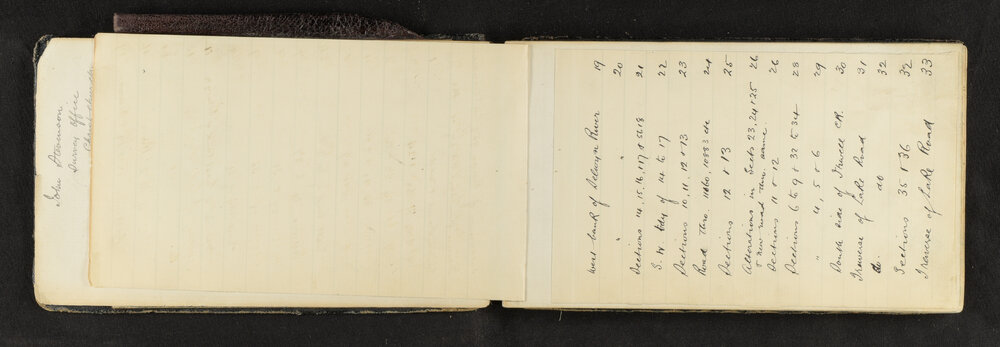 John Stevenson
Survey Office
Christchurch
West bank of Selwyn River 19
" " 20
Sections 14, 15, 16, 17 & 18 21
S. W bdy of 14 to 17 22
Sections 10, 11, 12 & 13 23
Road thro. 11860, 10883 etc 24
Sections 12 & 13 25
Alterations in Sects 23, 24 & 25 26
& new road thro same.
Sections 11 & 12 26
Sections 6 to 9 & 32 to 34 28
" 4, 5 & 6 29
South side of Irwell CK. 30
Traverse of Lake Road 31
do. do 32
Sections 35 & 36 32
Traverse of Lake Road 33